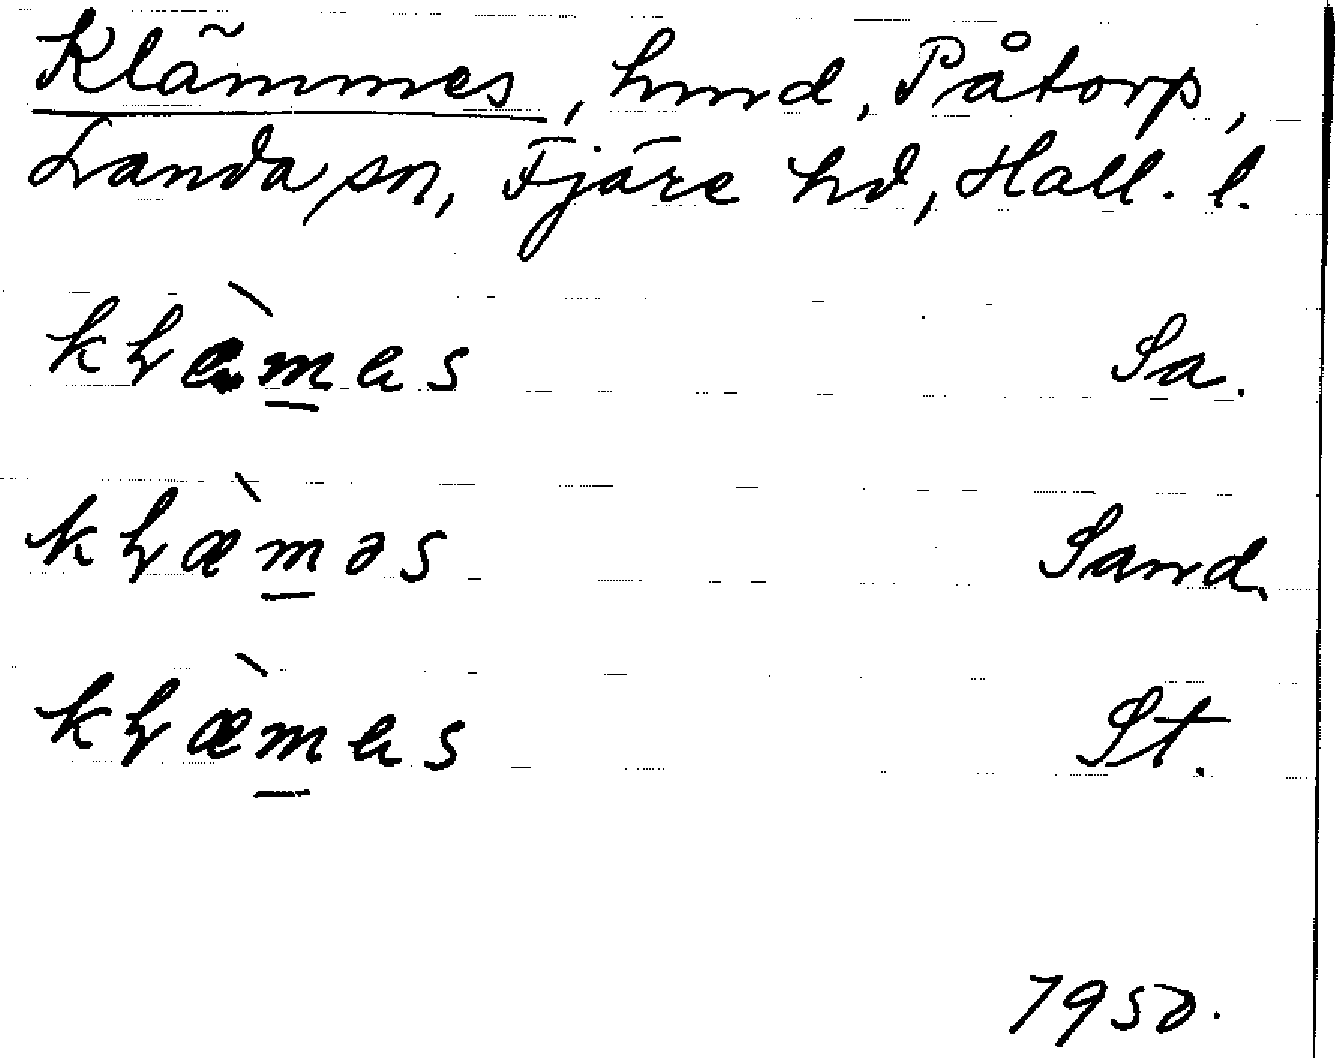 Klämmes, hmd, Påtorp,
Landa sn, Fjäre hd, Hall. l.
Sa.
kḷæ̀m̲əs Sand.
St.
1950.